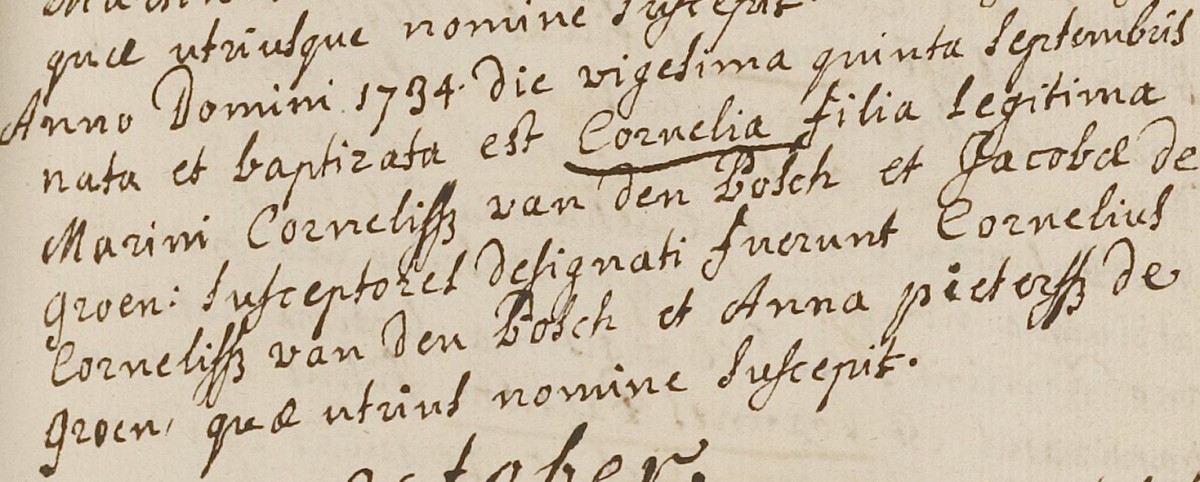 quæ utriusque nomine suscepit.
Anno Domini 1734. Die vigesima quinta septembris
nata et baptizata est Cornelia filia legitima
Marini Cornelissz van den Bosch et Jacobæ de
groen: susceptores designati fuerunt Cornelius
Cornelissz van den Bosch et Anna pieterssz de
groen, quæ utrius nomine suscepit.
October.